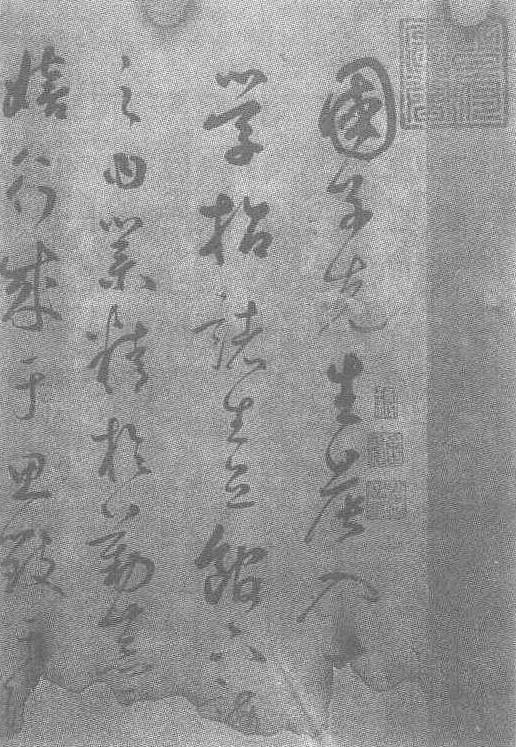 國子先生晨入
學招諸生立館下誨
之曰業精於勤荒
嬉行成于思毀于